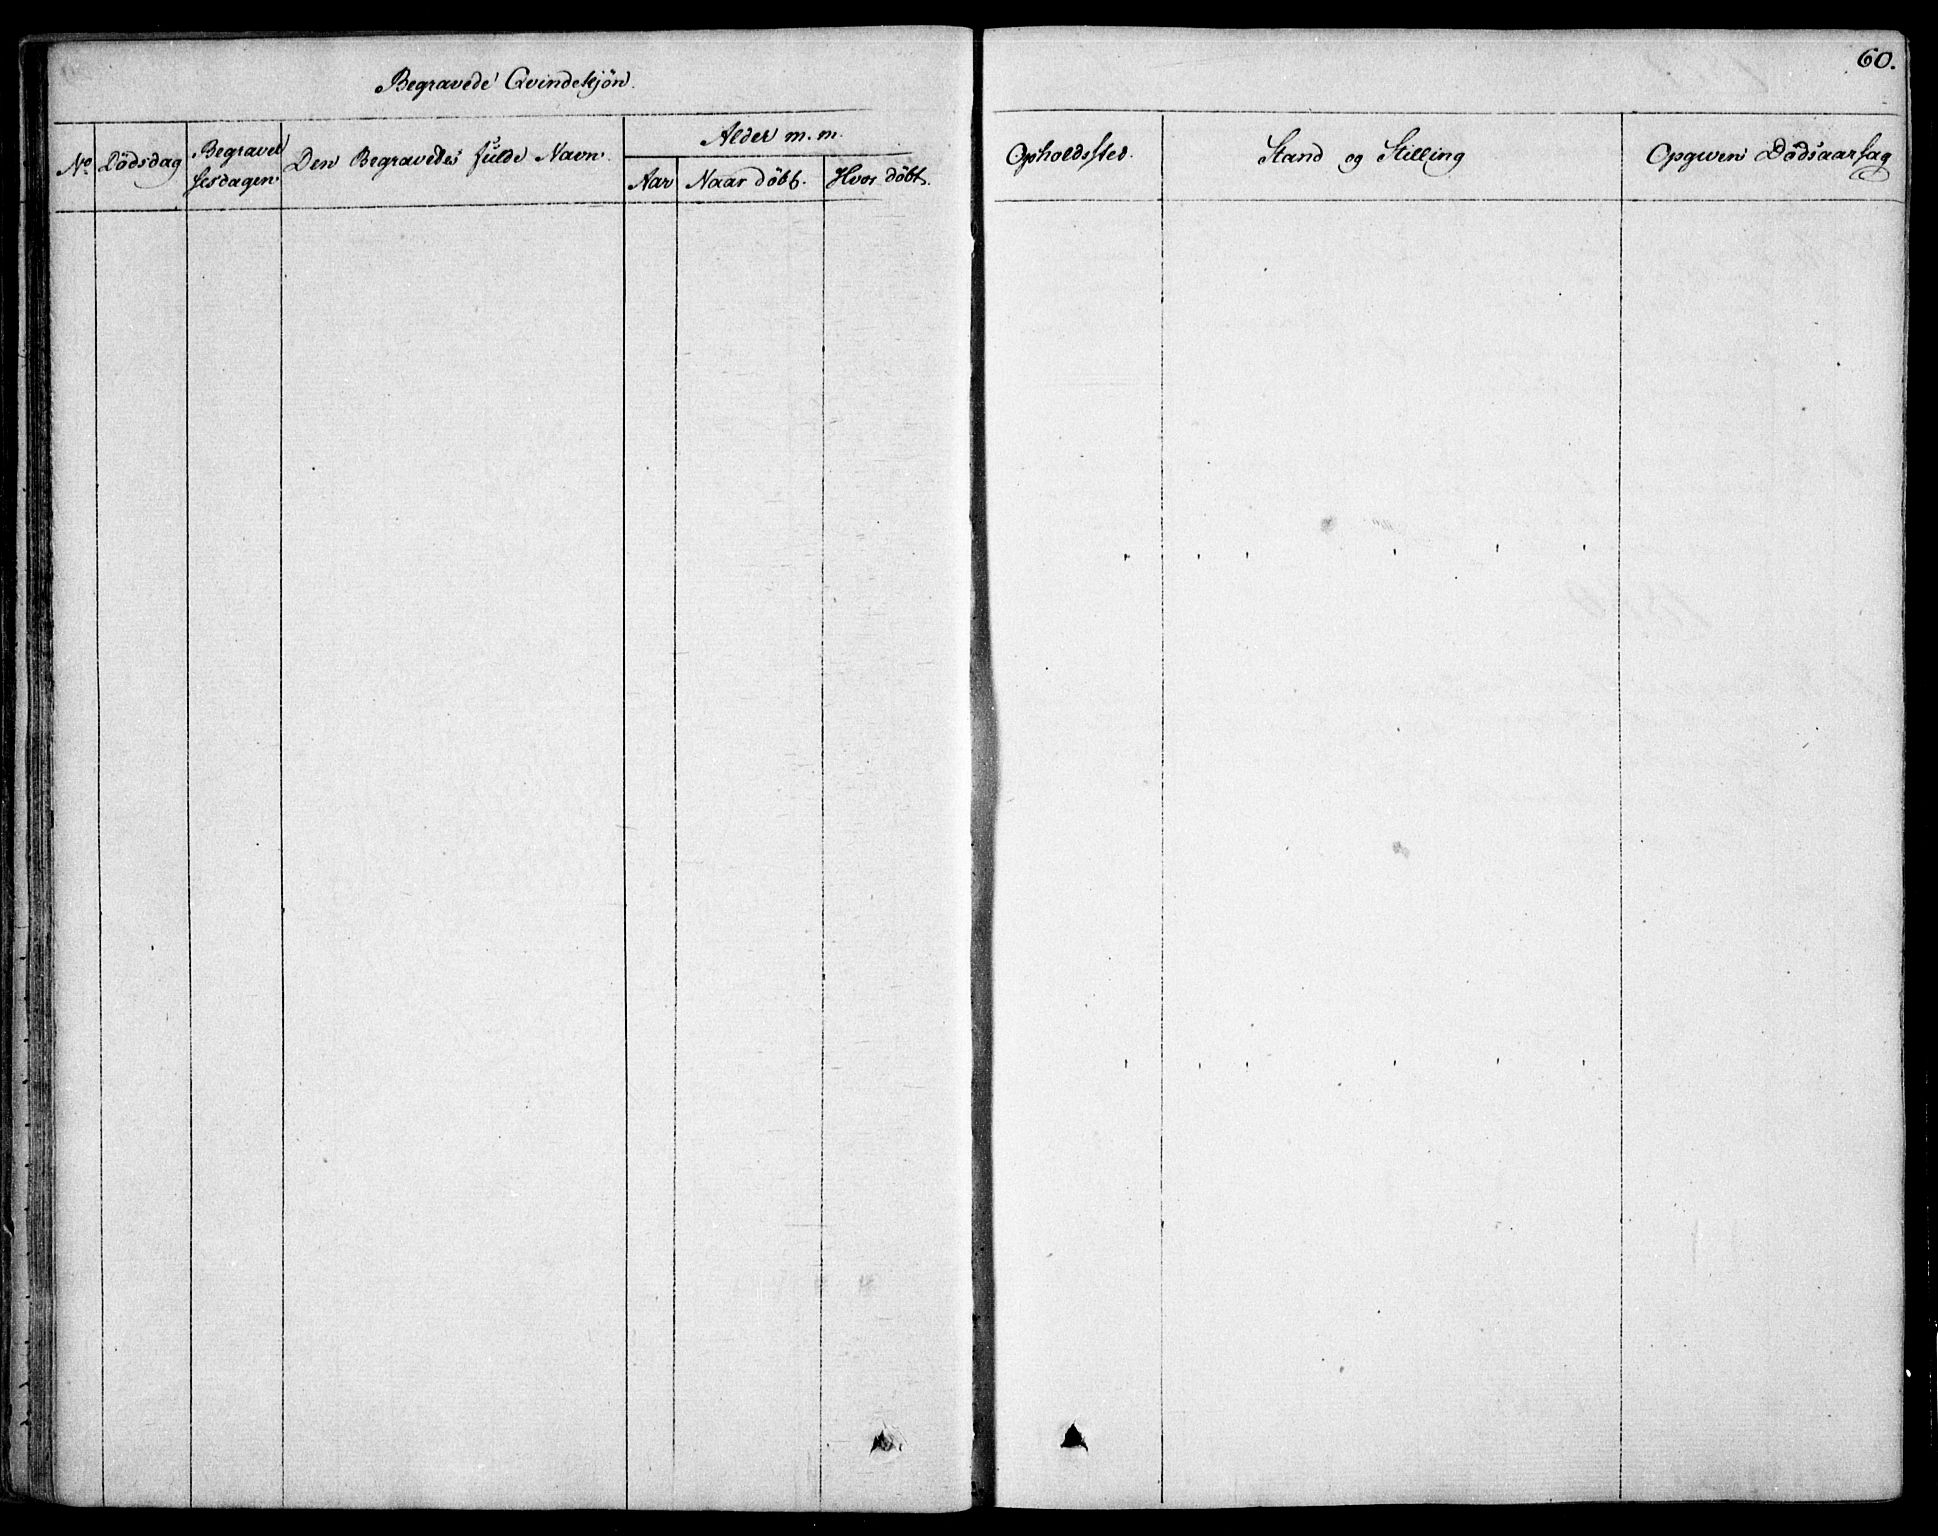 60.
Begravede Qvindekjøn.
No Dödsdag Begravel
sesdagen Den Begravedes fulde Navn. Alder m. m.
Aar Naar döbt. Hvor döbt.
Opholdssted. Stand og Stilling Opgiven Dödsaarsag